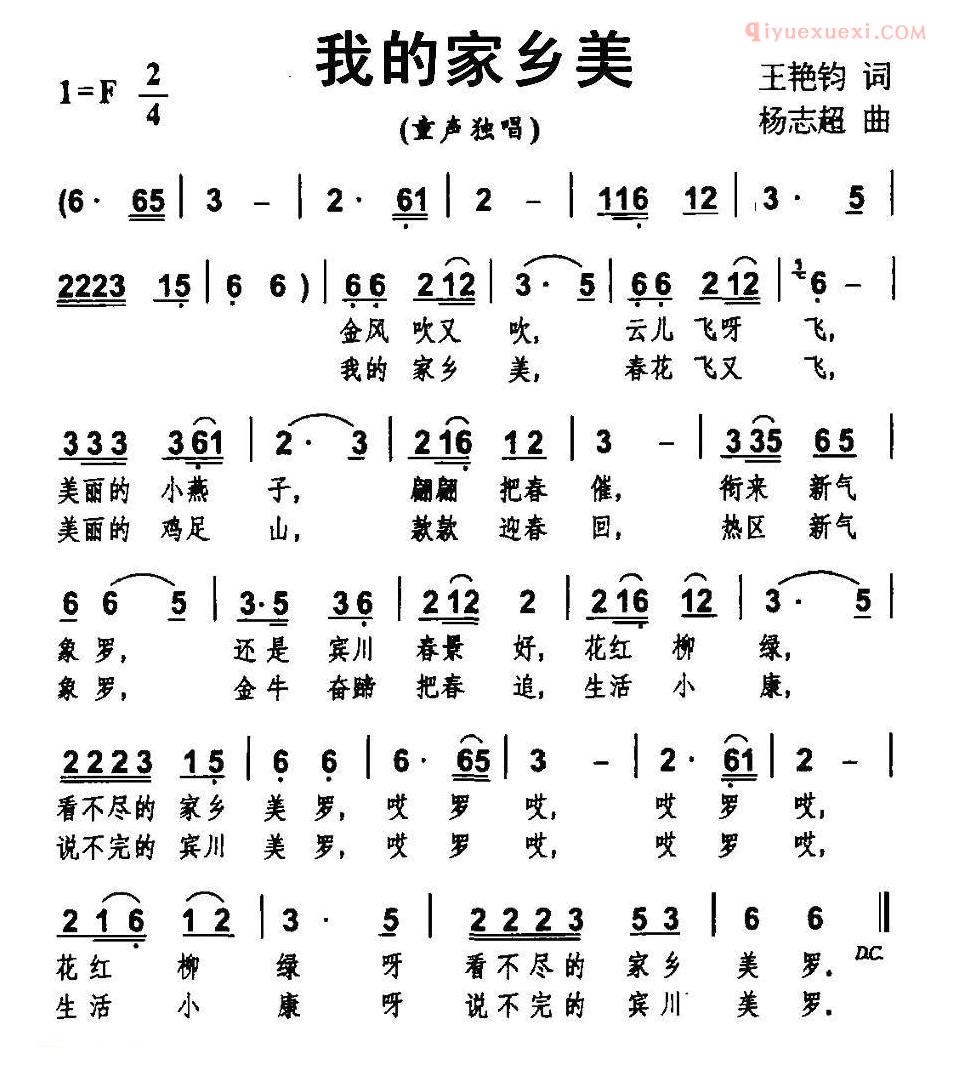 qiyuexuexi.COM
我的家乡美
1=F 2/4
王艳钧 词
(童声独唱)
杨志超 曲
(6· 65 | 3 – | 2· 61 | 2 – | 116 12 | 3· 5 |
2223 15 | 6 6 ) | 66 212 | 3· 5 | 66 212 | 6 – |
金风 吹又 吹, 云儿 飞呀 飞,
我的 家乡 美, 春花 飞又 飞,
333 361 | 2· 3 | 216 12 | 3 – | 335 65 |
美丽的 小燕 子, 翩翩 把春 催, 衔来 新气
美丽的 鸡足 山, 款款 迎春 回, 热区 新气
6 6 5 | 3·5 36 | 212 2 | 216 12 | 3· 5 |
象 罗, 还是 宾川 春景 好, 花红 柳 绿,
象 罗, 金牛 奋蹄 把春 追, 生活 小 康,
2223 15 | 6 6 | 6· 65 | 3 – | 2· 61 | 2 – |
看不尽的 家乡 美 罗, 哎 罗 哎, 哎 罗 哎,
说不完的 宾川 美 罗, 哎 罗 哎, 哎 罗 哎,
216 12 | 3· 5 | 2223 53 | 6 6 ‖
花红 柳 绿 呀 看不尽的 家乡 美 罗. D.C.
生活 小 康 呀 说不完的 宾川 美 罗.